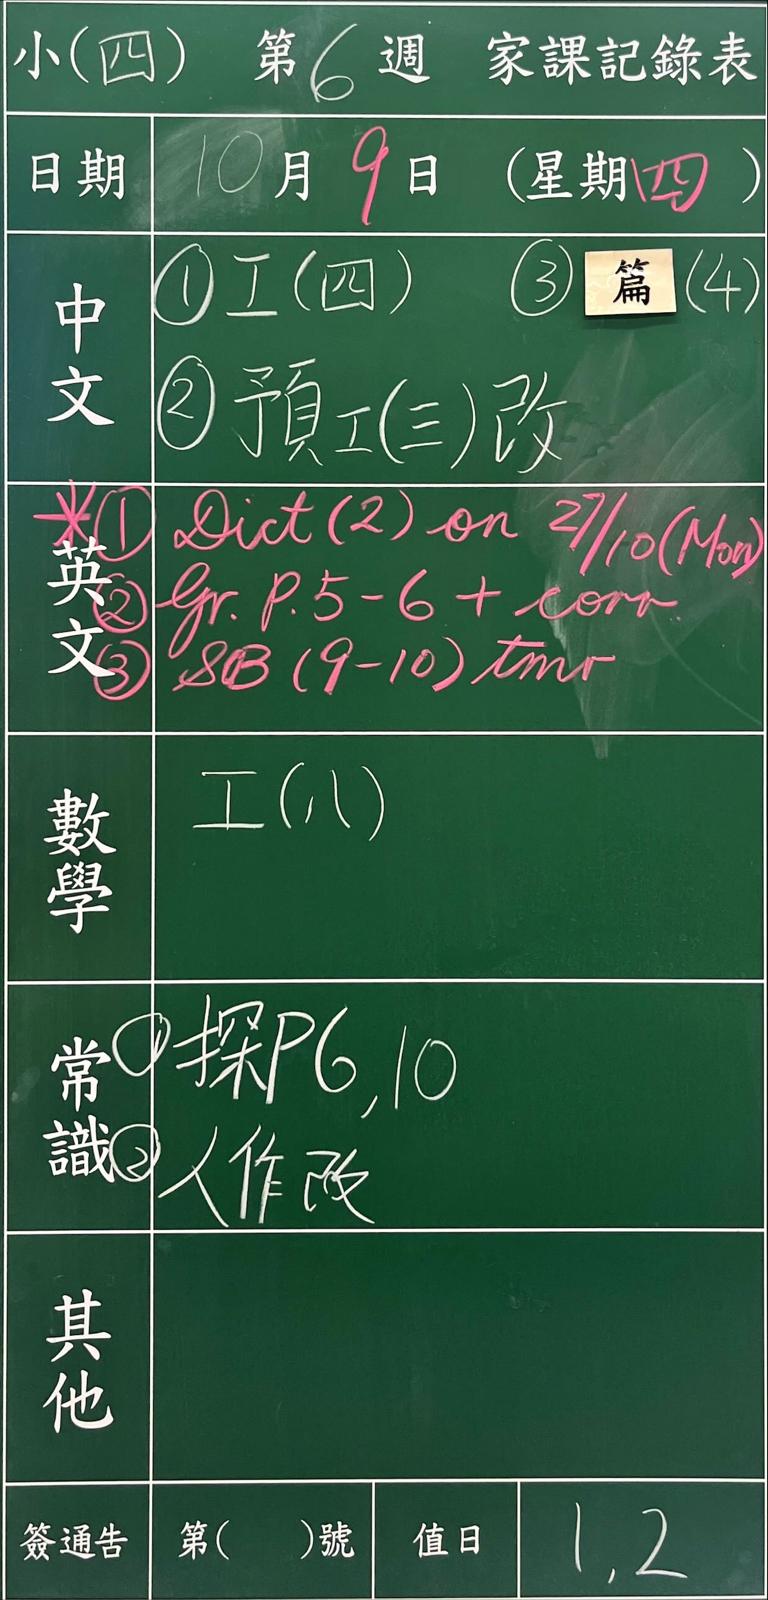 小(四) 第6週 家課記錄表
日期 10月9日 (星期四)
中文
①工(四) ③篇(4)
②預工(三)改
英文
*① Dict (2) on 27/10 (Mon)
② Gr. P.5-6 + corr
③ SB (9-10) tmr
數學
工(八)
常識
①探P6,10
②人作改
其他
簽通告 第( )號 值日 1,2